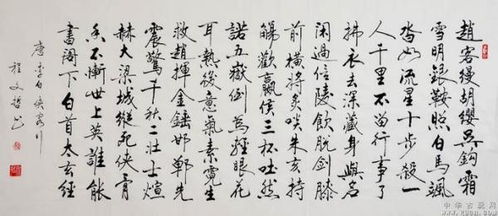 趙客縵胡纓吳鉤霜
雪明銀鞍照白馬颯
沓如流星十步殺一
人千里不留行事了
拂衣去深藏身與名
閑過信陵飲脫劍膝
前橫將炙啖朱亥持
觴勸嬴侯三杯吐然
諾五嶽倒為輕眼花
耳熱後意氣素霓生
救趙揮金錘邯鄲先
震驚千秋二壯士煊
赫大梁城縱死俠骨
香不慚世上英誰能
書閣下白首太玄經
唐李白俠客行
程文
中华古玩网